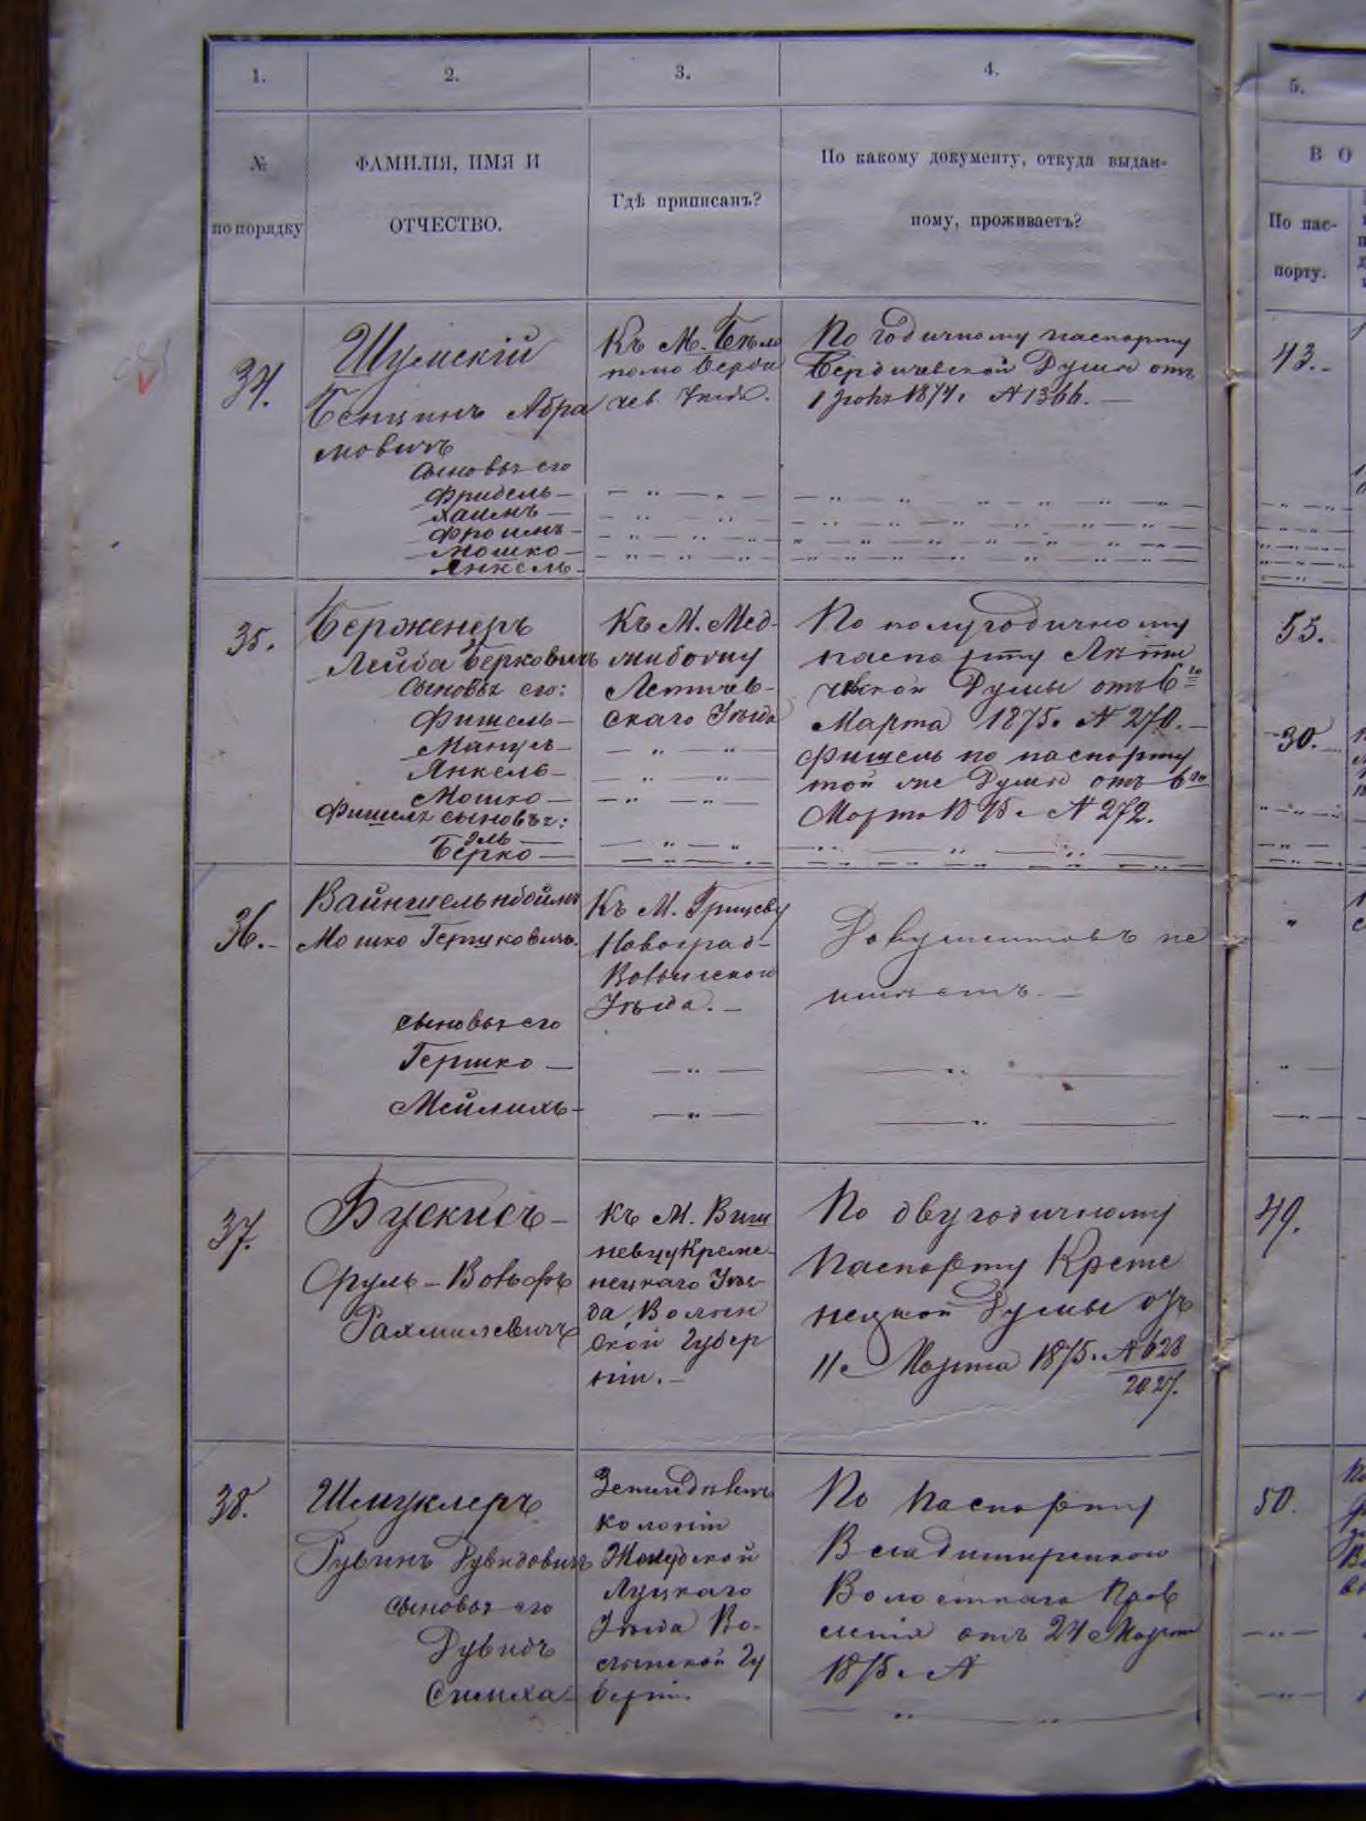 1.
2.
3.
4.
5.
№
по порядку
ФАМИЛІЯ, ИМЯ И
ОТЧЕСТВО.
Гдѣ приписанъ?
По какому документу, откуда выдан-
ному, проживаетъ?
В О
По пас-
порту.
34.
Шумскій
Бенционъ Абра
мовичъ
сыновья его
Фридель —
Хаимъ —
Фроимъ —
Мошко —
Янкель —
Къ М. Бѣло
полю Берди
чев. Уѣзда.
По годичному паспорту
Бердичевской Думы отъ
1874. № 1366. —
43. -
35.
Берженеръ
Лейба Берковичъ
Сыновья его:
Фишель —
Манусъ —
Янкель —
Мошко —
Фишеля сыновья:
Эль —
Берко —
Къ М. Мед-
жибожу
Летичев-
скаго Уѣзда
По полугодичному
паспорту Лети
чевской Думы отъ 6го
Марта 1875. № 270. —
Фишель по паспорту
той же Думы отъ 6го
Марта 1875. № 272.
55.
30.
36. -
Вайнштельнбоймъ
Мошко Гершковичъ.
сыновья его
Гершко —
Мейлихъ —
Къ М. Грицеву
Новоград-
Волынскаго
Уѣзда. —
Документовъ не
имѣетъ. —
37.
Бускисъ —
Сруль - Вольфъ
Рахмилевичъ
Къ М. Виш
невцу Креме-
нецкаго Уѣз-
да, Волын
ской Губер
ніи. —
По двугодичному
Паспорту Креме
нецкой Думы отъ
11. Марта 1875. № 628
2027.
49.
38.
Шмуклеръ
Рувинъ Дувидовичъ
сыновья его
Дувидъ
Симха
Земледѣлецъ
колоніи
Луцкаго
Уѣзда Во-
лынской Гу
берніи.
По Паспорту
Владимирецкого
Волостнаго Прав
ленія отъ 24 Марта
1875. №
50.